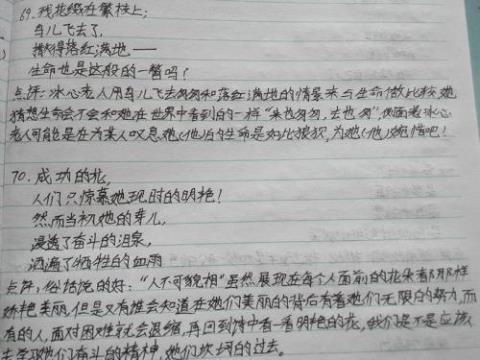 69.残花缀在繁枝上;
鸟儿飞去了,
撒得落红满地——
生命也是这般的一瞥吗?
点评:冰心老人用鸟儿飞去匆匆和落红满地的情景来与生命做比较她
猜想生命会不会和她在世界中看到的一样"来也匆匆,去也匆",侧面看冰心
老人可能是在为某人叹息她(他)的生命是如此短暂,为她(他)惋惜吧!
70.成功的花,
人们只惊慕她现时的明艳!
然而当初她的芽儿,
浸透了奋斗的泪泉,
洒遍了牺牲的血雨
点评:俗话说的好:"人不可貌相"虽然展现在每个人面前的花朵看那样
娇艳美丽,但是又有谁会知道在她们美丽的背后有着她们无限的努力,而
有的人,面对困难就会退缩,再回到诗中看一看明艳的花,我们是不是应该
去学她们奋斗的精神,她们坎坷的过去。